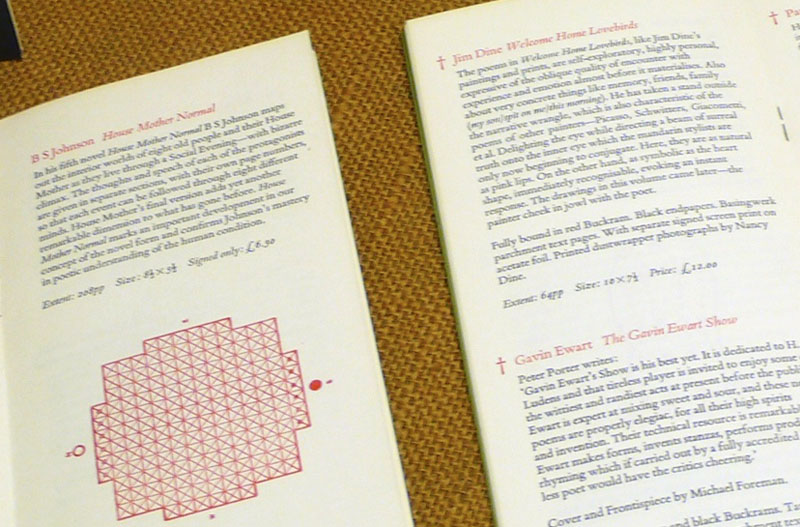 B S Johnson House Mother Normal
In his fifth novel House Mother Normal B S Johnson maps
out the interior worlds of eight old people and their House
Mother as they live through a Social Evening—with bizarre
climax. The thoughts and speech of each of the protagonists
are given in separate sections, with their own page numbers,
so that each event can be followed through eight different
minds. House Mother's final version adds yet another
remarkable dimension to what has gone before. House
Mother Normal marks an important development in our
concept of the novel form and confirms Johnson's mastery
in poetic understanding of the human condition.
Extent: 208pp Size: 8½×5½ Signed only: £6.30
† Jim Dine Welcome Home Lovebirds
The poems in Welcome Home Lovebirds, like Jim Dine's
paintings and prints, are self-exploratory, highly personal,
expressive of the oblique quality of encounter with
experience and emotion almost before it materialises. Also
about very concrete things like memory, friends, family
(my son/spit on me/this morning). He has taken a stand outside
the narrative wrangle, which is also characteristic of the
poems of other painters—Picasso, Schwitters, Giacometti,
et al. Delighting the eye while directing a beam of surreal
truth onto the inner eye which the mandarin stylists are
only now beginning to conjugate. Here, they are as natural
as pink lips. On the other hand, as symbolic as the heart
shape, immediately recognisable, evoking an instant
response. The drawings in this volume came later—the
painter cheek in jowl with the poet.
Fully bound in red Buckram. Black endpapers. Basingwerk
parchment text pages. With separate signed screen print on
acetate foil. Printed dustwrapper photographs by Nancy
Dine.
Extent: 64pp Size: 10×7½ Price: £12.00
† Gavin Ewart The Gavin Ewart Show
Peter Porter writes:
'Gavin Ewart's Show is his best yet. It is dedicated to H.
Ludens and that tireless player is invited to enjoy some
the wittiest and randiest acts at present before the publi
Ewart is expert at mixing sweet and sour, and these n
poems are properly elegiac, for all their high spirits
and invention. Their technical resource is remarkab
Ewart makes forms, invents stanzas, performs prod
rhyming which if carried out by a fully accredited
less poet would have the critics cheering.'
Cover and Frontispiece by Michael Foreman.
and black Buckrams.
† Pa